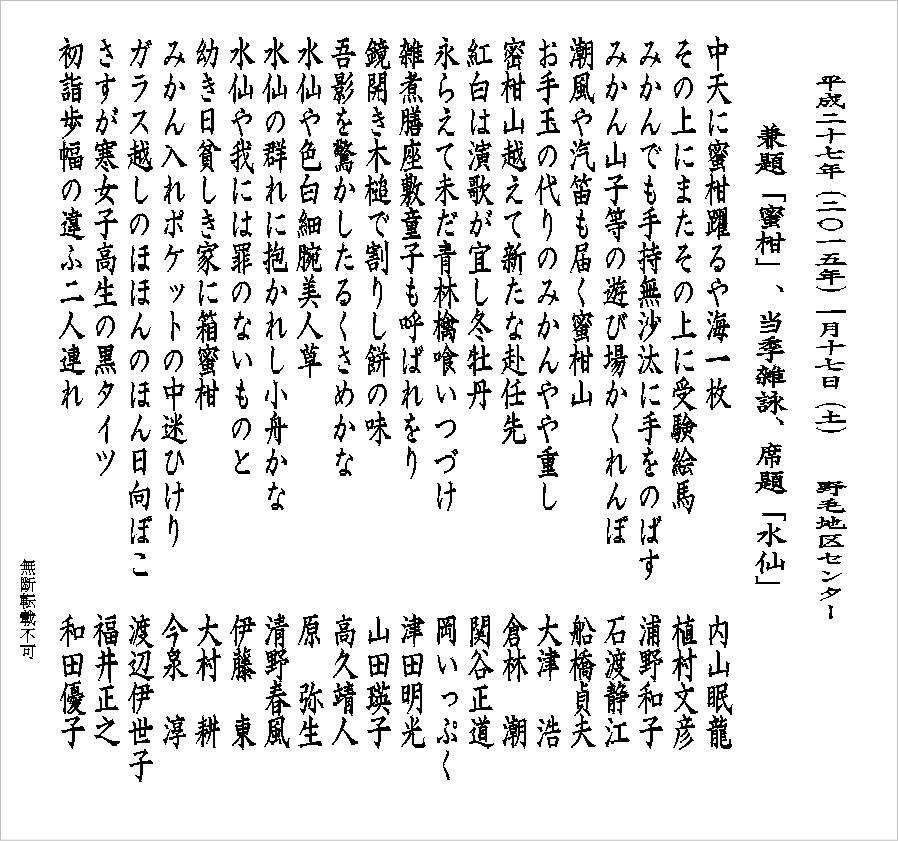 平成二十七年(二〇一五年)一月十七日(土) 野毛地区センター
兼題「蜜柑」、当季雑詠、席題「水仙」
中天に蜜柑躍るや海一枚 内山眠龍
その上にまたその上に受験絵馬 植村文彦
みかんでも手持無沙汰に手をのばす 浦野和子
みかん山子等の遊び場かくれんぼ 石渡静江
潮風や汽笛も届く蜜柑山 船橋貞夫
お手玉の代りのみかんやや重し 大津 浩
密柑山越えて新たな赴任先 倉林 潮
紅白は演歌が宜し冬牡丹 関谷正道
永らえて未だ青林檎喰いつづけ 岡いっぷく
雑煮膳座敷童子も呼ばれをり 津田明光
鏡開き木槌で割りし餅の味 山田瑛子
吾影を驚かしたるくさめかな 高久靖人
水仙や色白細腕美人草 原 弥生
水仙の群れに抱かれし小舟かな 清野春風
水仙や我には罪のないものと 伊藤 東
幼き日貧しき家に箱蜜柑 大村 耕
みかん入れポケットの中迷ひけり 今泉 淳
ガラス越しのほほんのほん日向ぼこ 渡辺伊世子
さすが寒女子高生の黒タイツ 福井正之
初詣歩幅の違ふ二人連れ 和田優子
無断転載不可